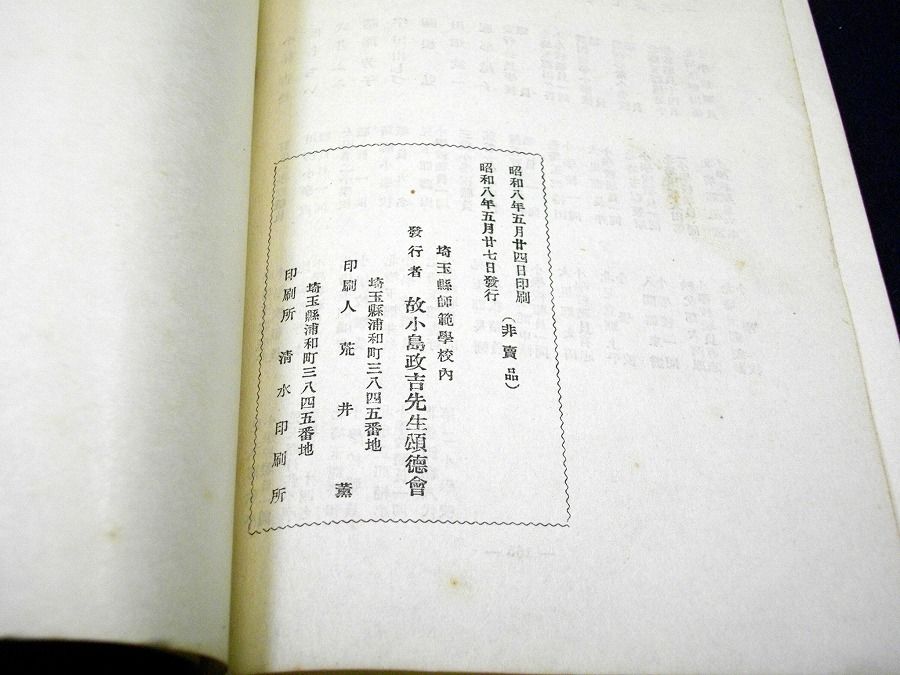 昭和八年五月廿四日印刷
昭和八年五月廿七日發行
(非賣品)
埼玉縣師範學校內
發行者 故小島政吉先生頌德會
埼玉縣浦和町三八四五番地
印刷人 荒井薰
埼玉縣浦和町三八四五番地
印刷所 淸水印刷所